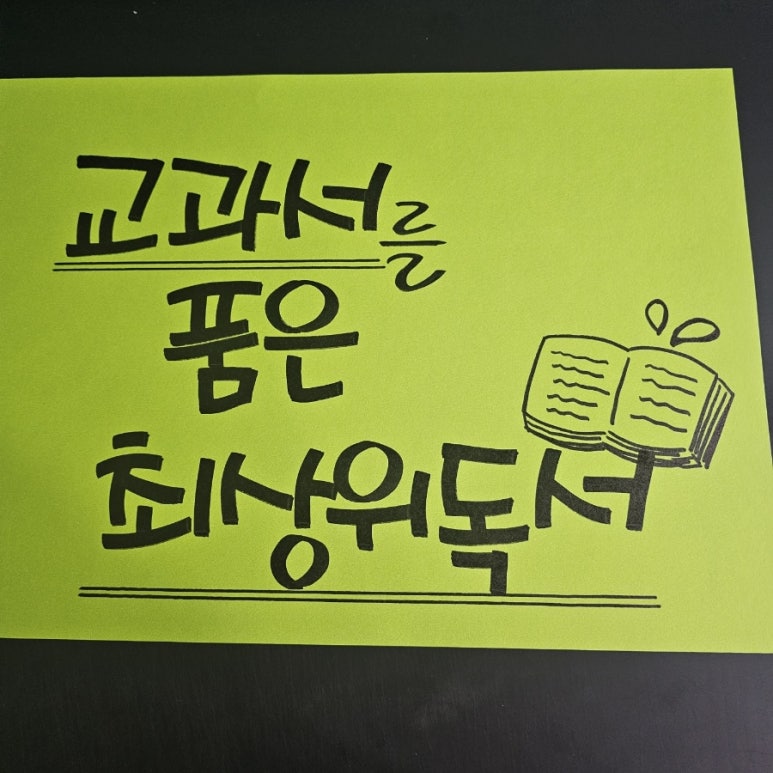 교과서를
품은
최상위독서